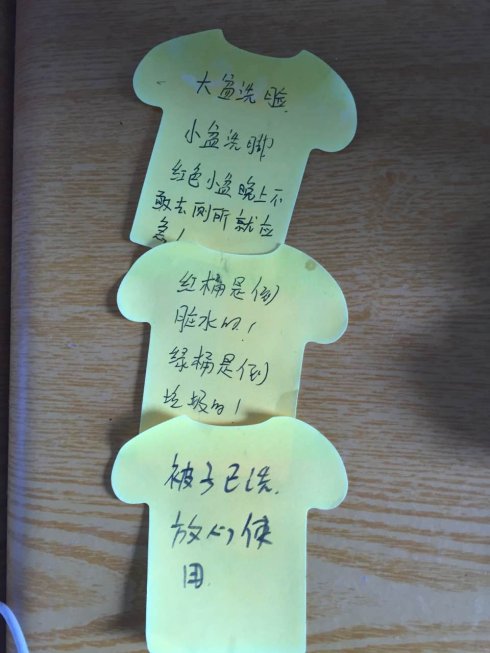 大盆洗脸
小盆洗脚
红色小盆晚上不
敢去厕所就应
急！
红桶是倒
脏水的！
绿桶是倒
垃圾的！
被子已洗.
放心使
用.